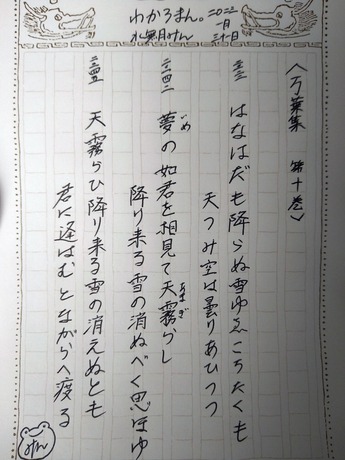 わかろまん。
2022
一月
水無月
〈万葉集 第十巻〉
二三二二 はなはだも降らぬ雪ゆゑこちたくも
天つみ空は曇りあひつつ
二三四二 夢の如君を相見て天霧らし
いめ
あまぎ
降り来る雪の消ぬべく思ほゆ
二三四五 天霧らひ降り来る雪の消えぬとも
君に逢はむとながらへ渡る